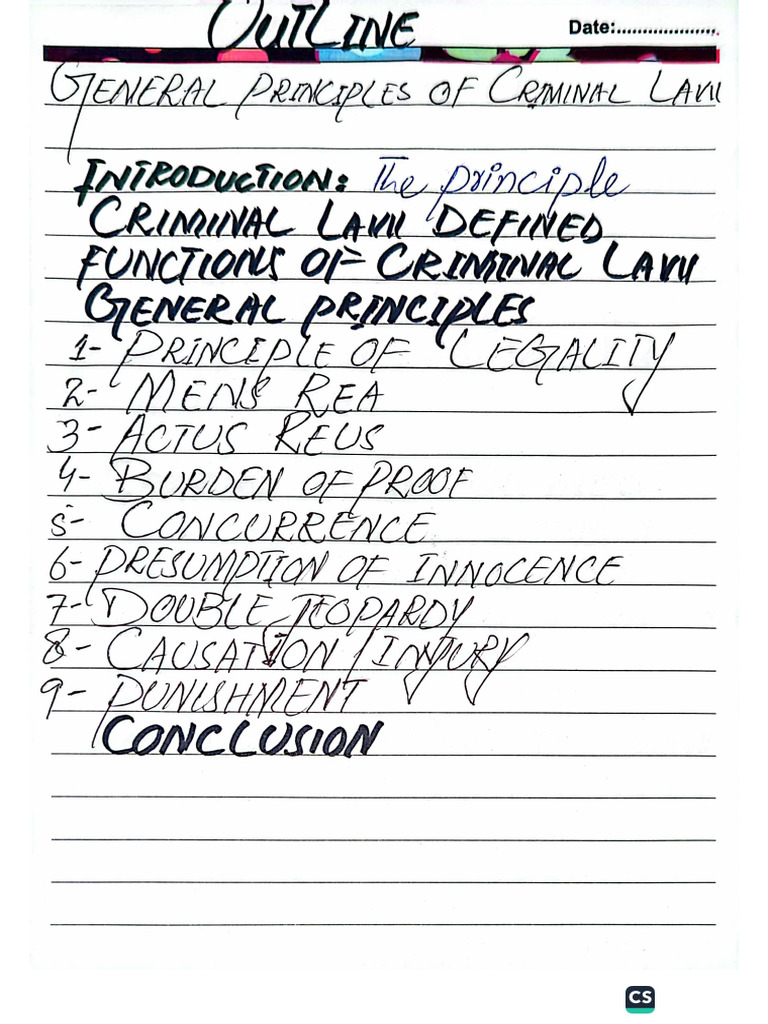 OUTLINE
Date:....................
GENERAL PRINCIPLES OF CRIMINAL LAW
INTRODUCTION: The principle
CRIMINAL LAW DEFINED
FUNCTIONS OF CRIMINAL LAW
GENERAL PRINCIPLES
1- PRINCIPLE OF LEGALITY
2- MENS REA
3- ACTUS REUS
4- BURDEN OF PROOF
5- CONCURRENCE
6- PRESUMPTION OF INNOCENCE
7- DOUBLE JEOPARDY
8- CAUSATION / INJURY
9- PUNISHMENT
CONCLUSION
CS